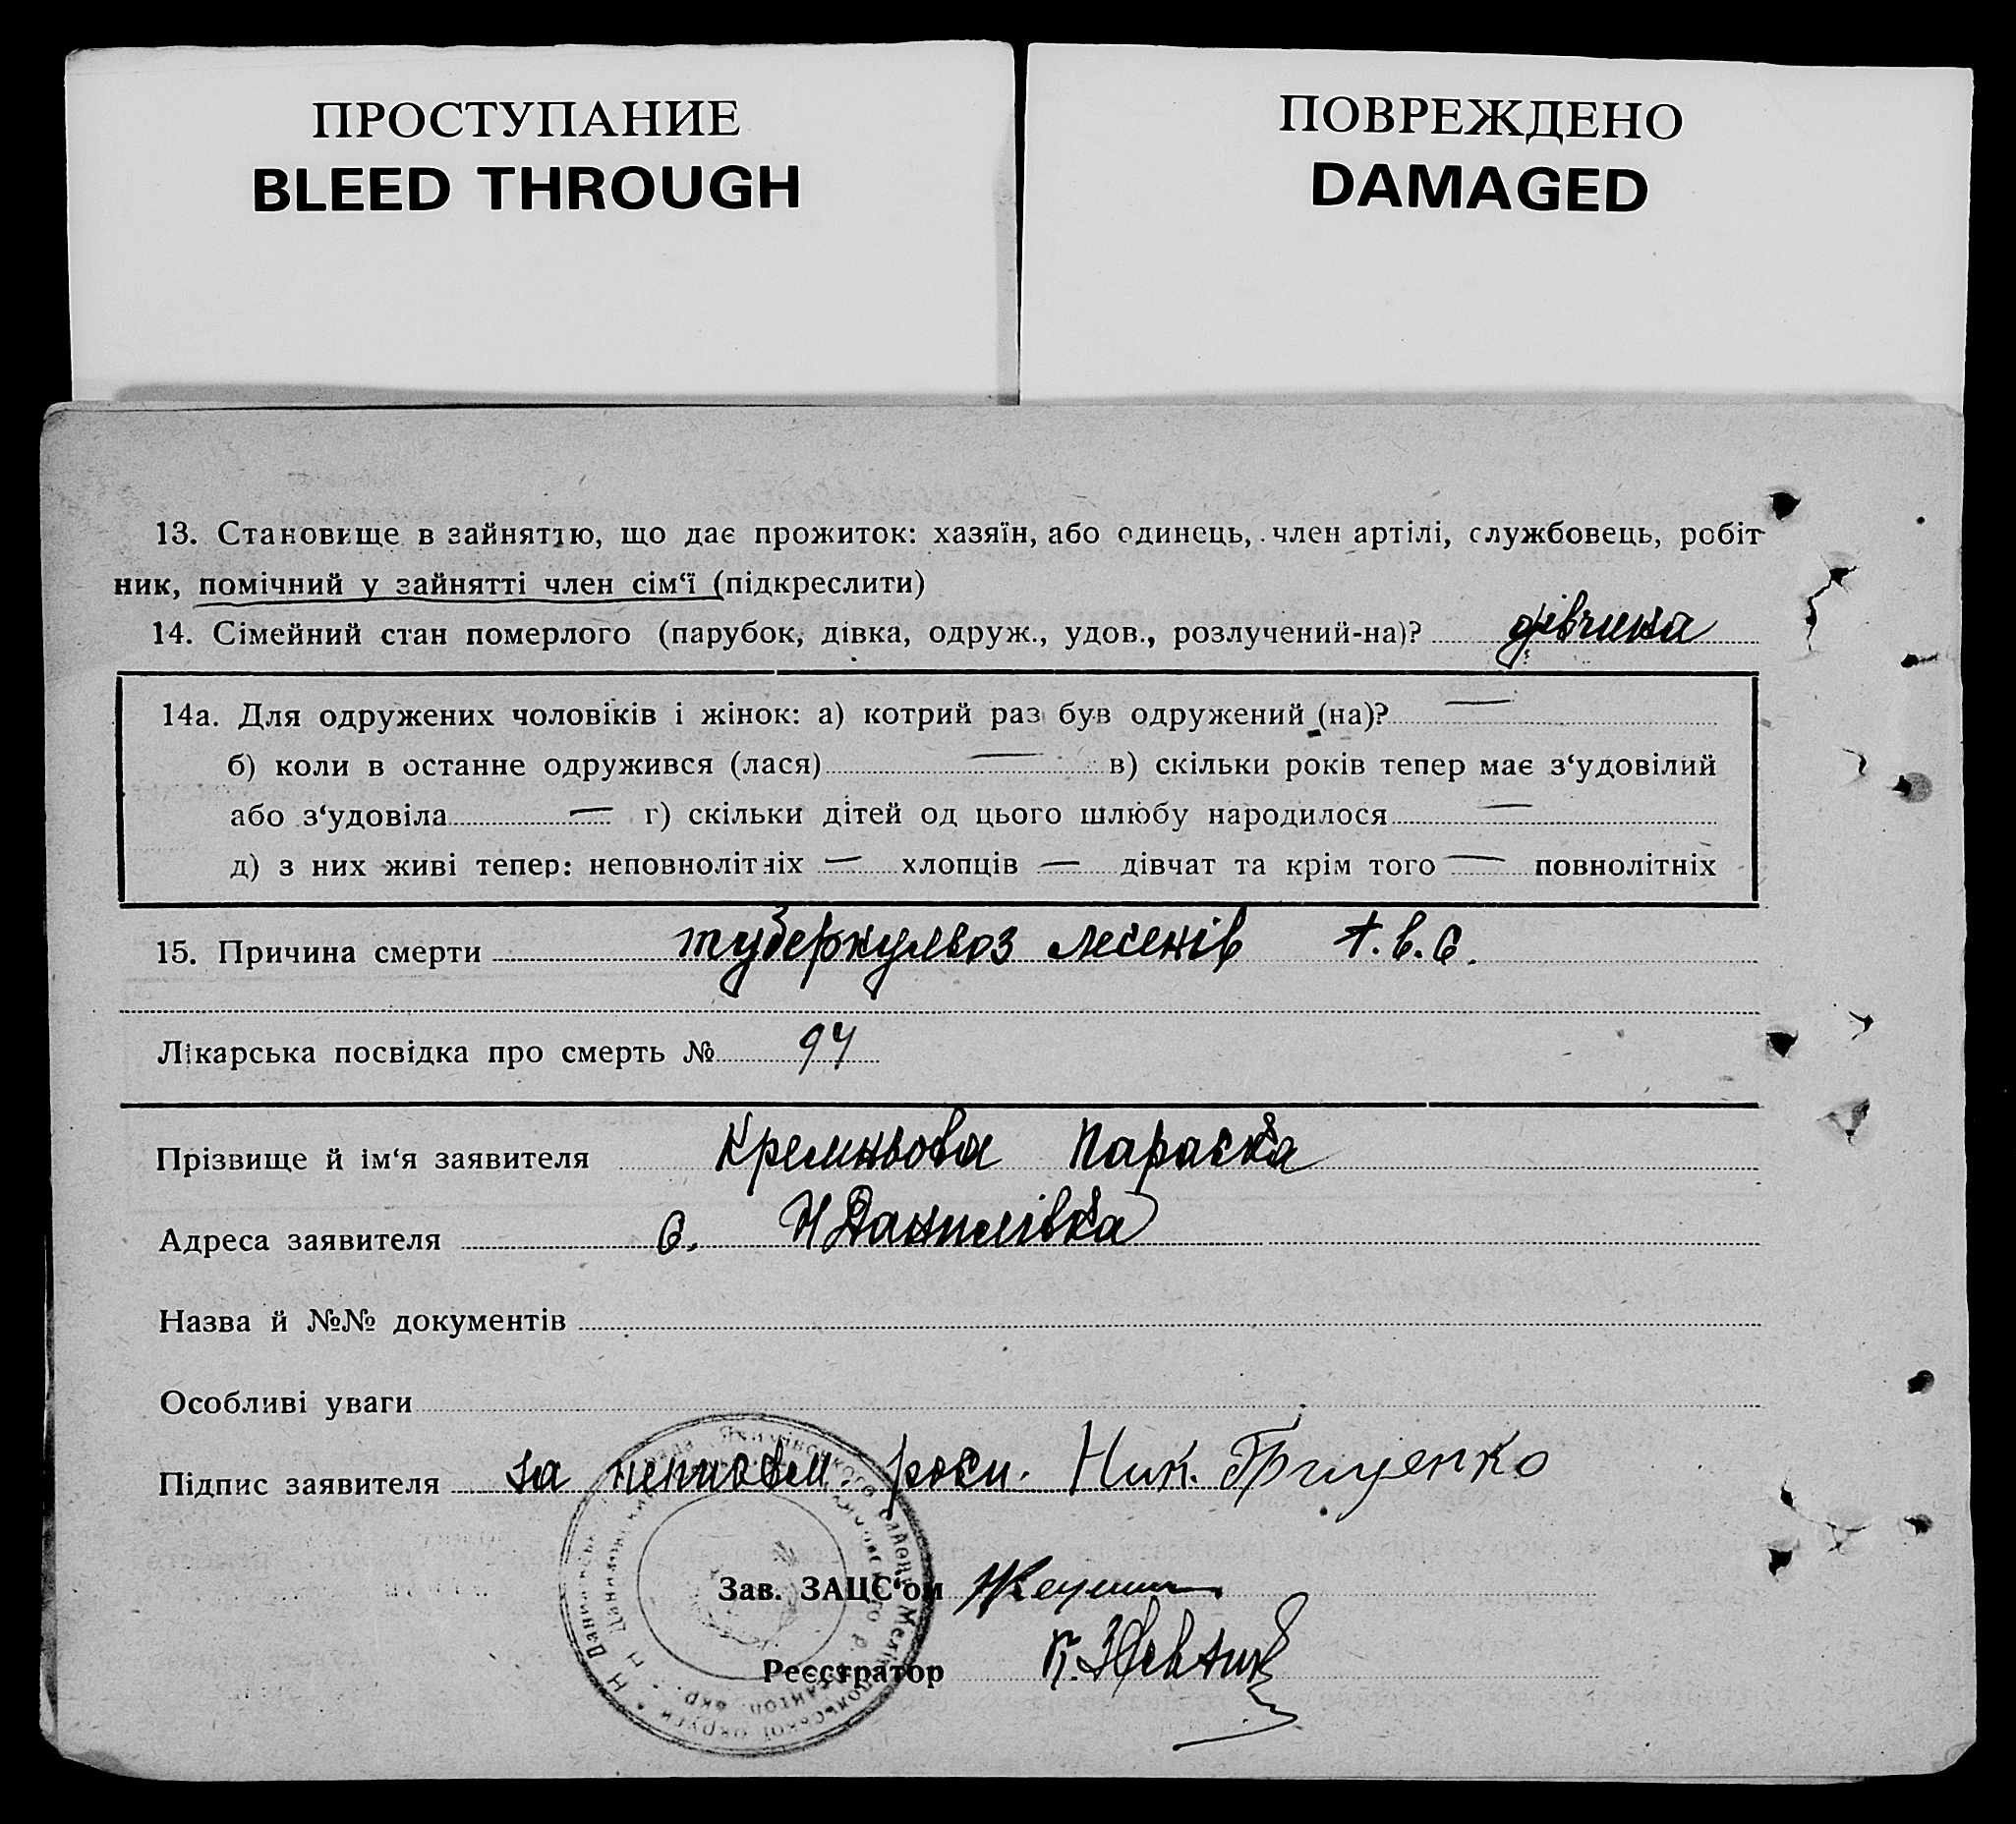 ПРОСТУПАНИЕ
BLEED THROUGH
ПОВРЕЖДЕНО
DAMAGED
13. Становище в зайняттю, що дає прожиток: хазяїн, або одинець, член артілі, службовець, робіт-
ник, помічний у зайнятті член сім‘ї (підкреслити)
14. Сімейний стан померлого (парубок, дівка, одруж., удов., розлучений-на)? дівчина
14а. Для одружених чоловіків і жінок: а) котрий раз був одружений (на)? —
б) коли в останне одружився (лася) — в) скільки років тепер має з‘удовілий
або з‘удовіла — г) скільки дітей од цього шлюбу народилося —
д) з них живі тепер: неповнолітніх — хлопців — дівчат та крім того — повнолітніх
15. Причина смерти туберкульоз легенів
Лікарська посвідка про смерть № 94
Прізвище й ім‘я заявителя Кремньова Параска
Адреса заявителя с. Н Данилівка
Назва й №№ документів
Особливі уваги
Підпис заявителя за неписьм роси. Ник. Грищенко
Зав. ЗАЦС‘ом
Реєстратор